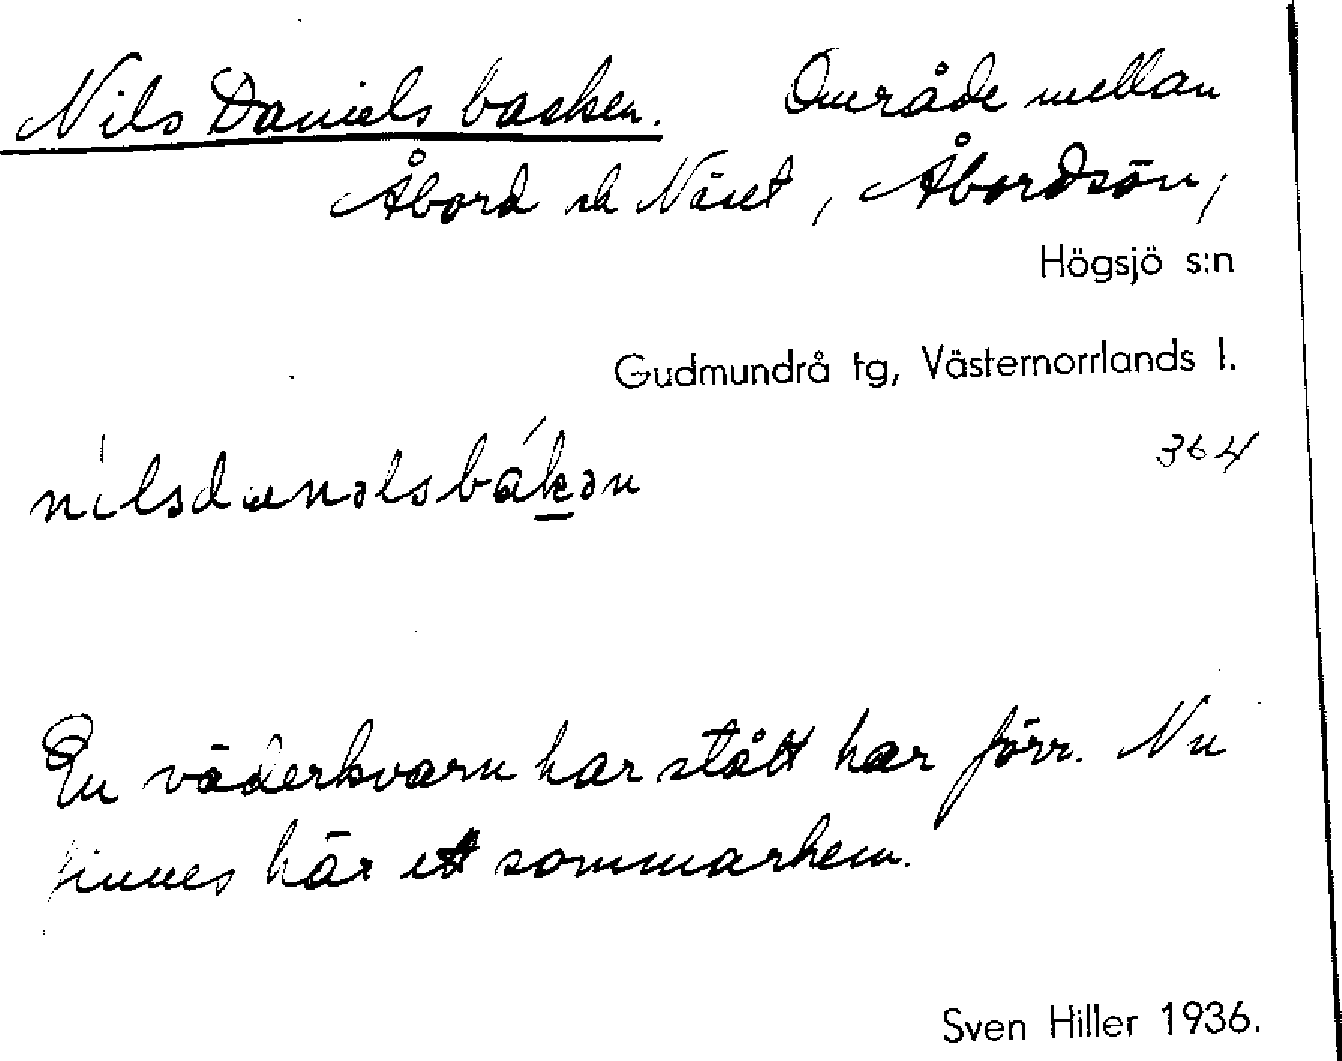 Nils Daniels backen. Område mellan
Åbord och Näset, Åbordsön,
Högsjö s:n
Gudmundrå tg, Västernorrlands l.
364
En väderkvarn har stått här förr. Nu
finnes här ett sommarhem.
Sven Hiller 1936.